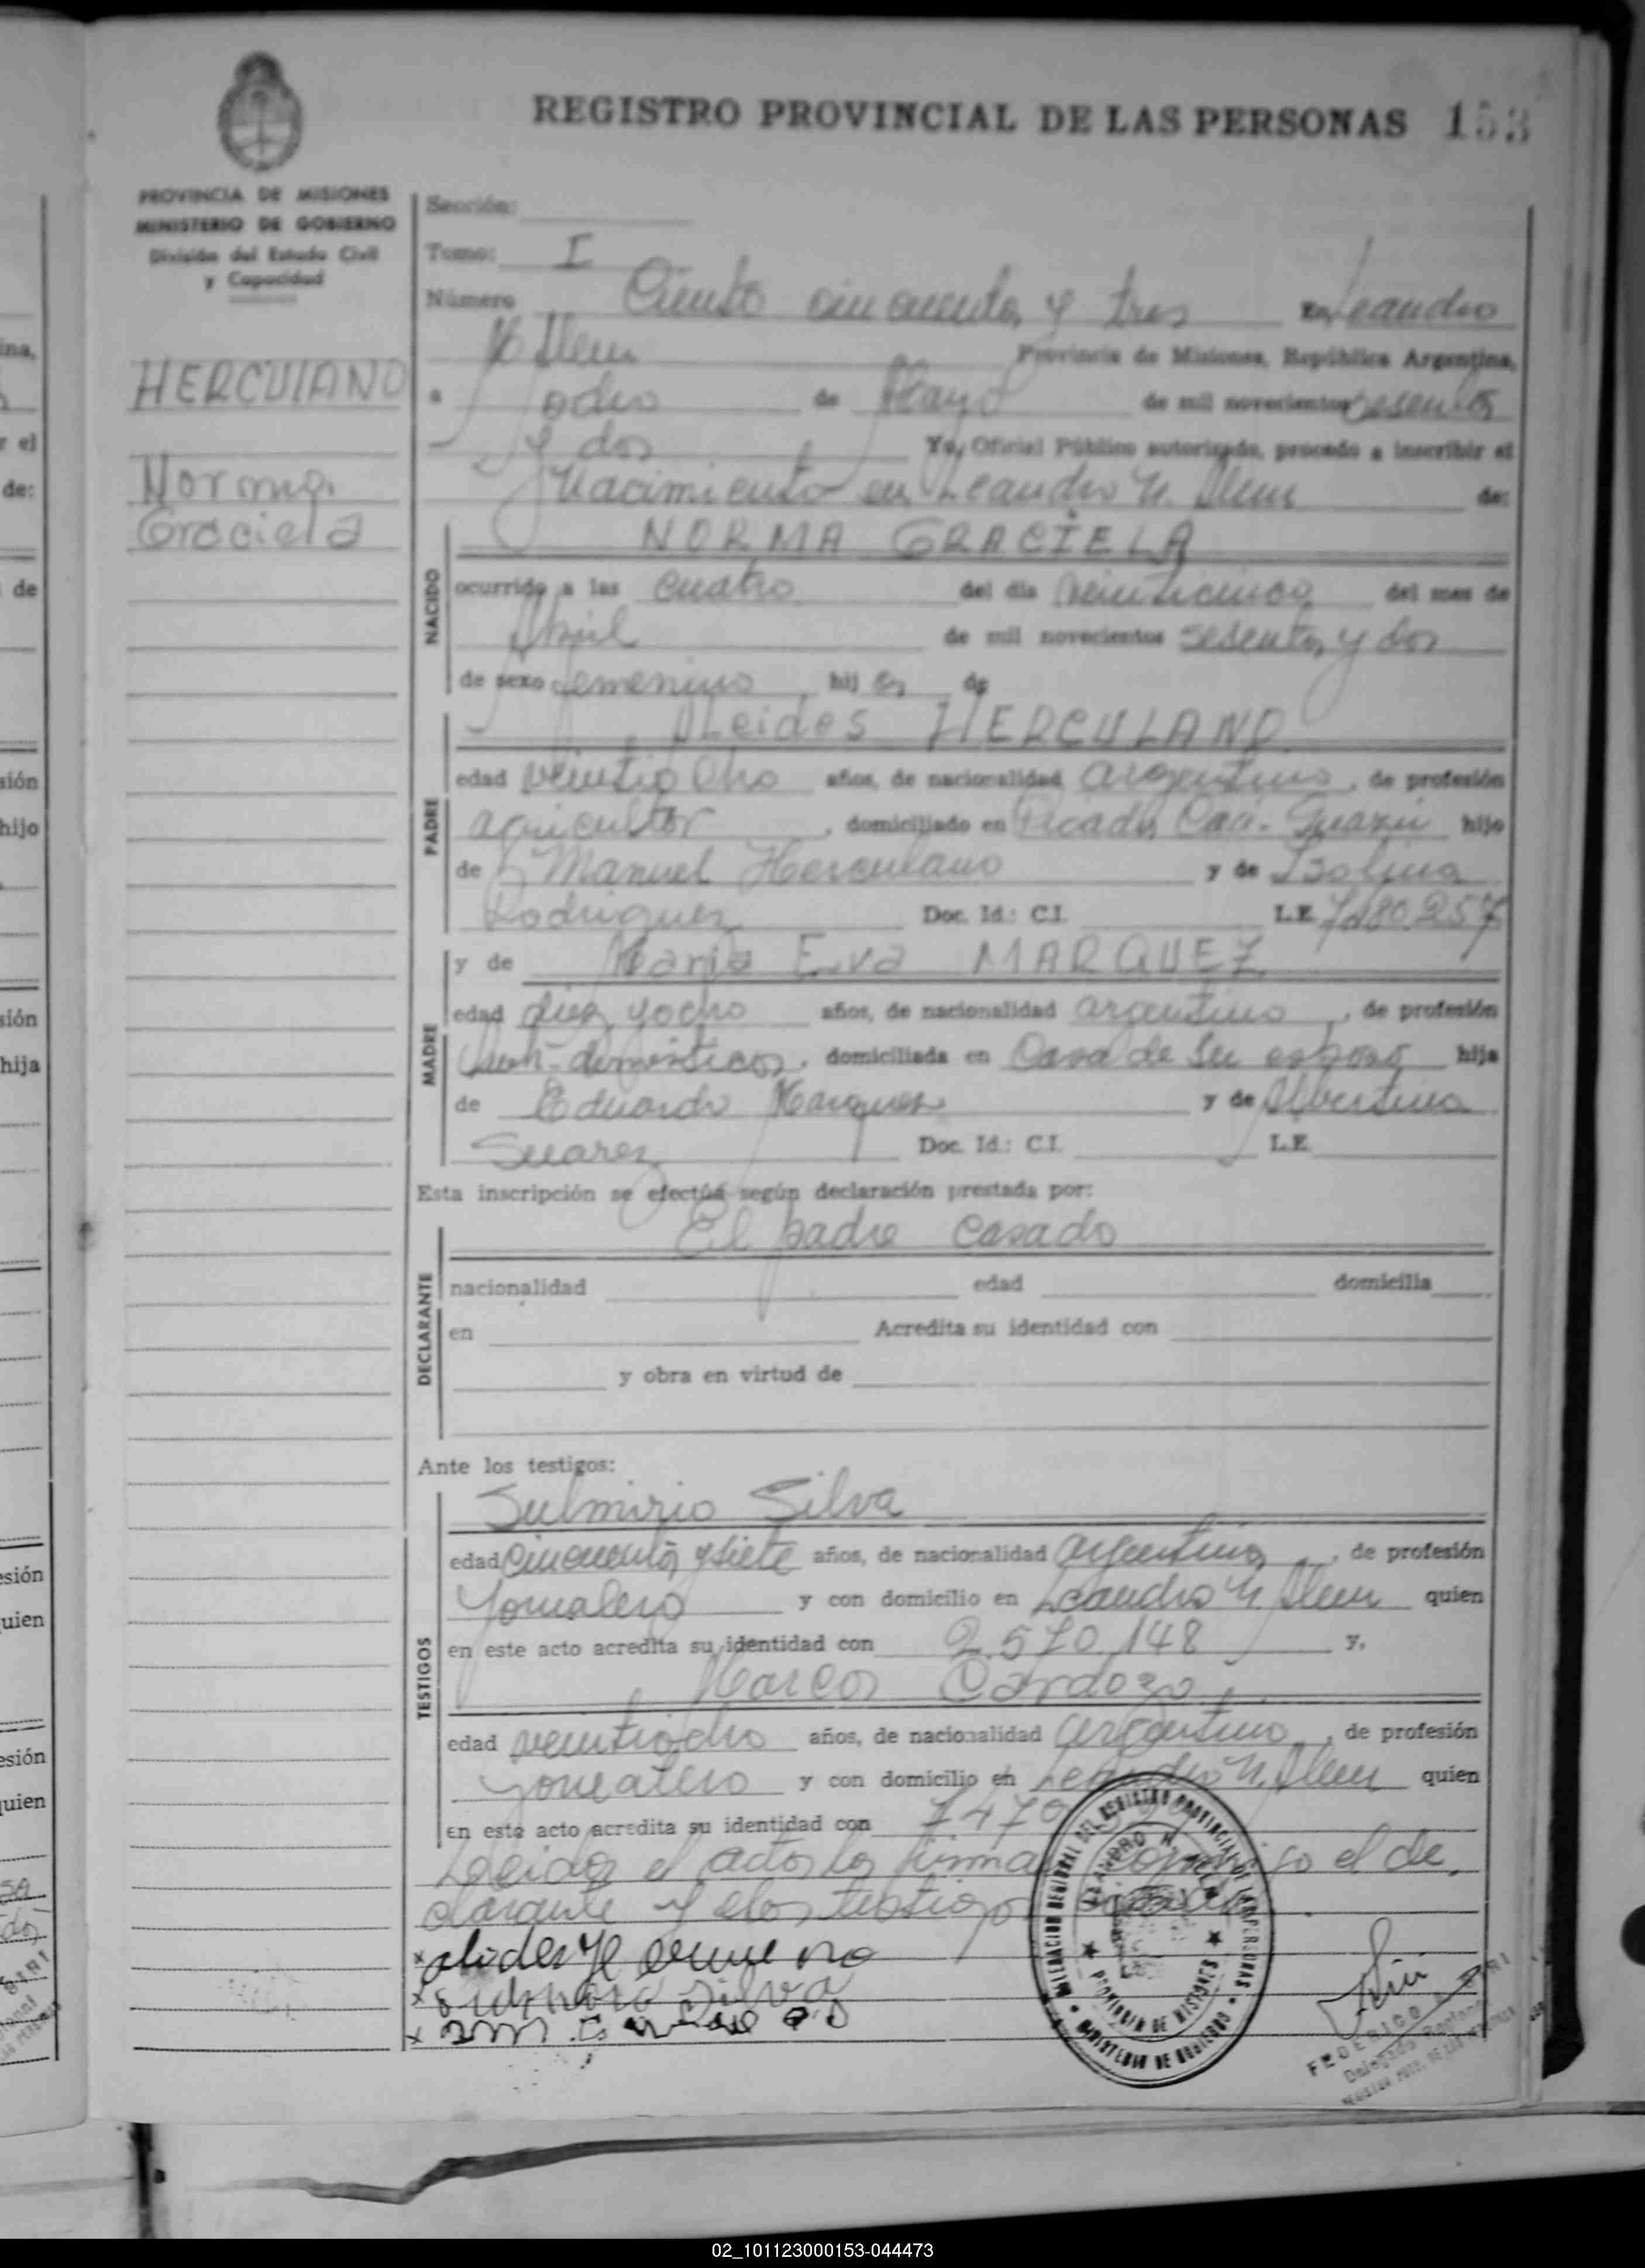 REGISTRO PROVINCIAL DE LAS PERSONAS 153
PROVINCIA DE MISIONES
MINISTERIO DE GOBIERNO
División del Estado Civil
y Capacidad
HERCULANO
Norma
Graciela
Sección:
Tomo: I
Número Ciento cincuenta y tres En Leandro
N Alem Provincia de Misiones, República Argentina,
a ocho de Mayo de mil novecientos sesenta
y dos Yo, Oficial Público autorizado, procedo a inscribir el
Nacimiento en Leandro N. Alem de:
NACIDO
NORMA GRACIELA
ocurrido a las cuatro del día veinticinco del mes de
Abril de mil novecientos sesenta y dos
de sexo femenino hij a de
PADRE
Alcides HERCULANO
edad veintiocho años, de nacionalidad argentino, de profesión
agricultor, domiciliado en Picada Caá-Guazú hijo
de Manuel Herculano y de Isolina
Rodriguez Doc. Id.: C.I. L.E. 7.480.257
MADRE
y de Maria Eva MARQUEZ
edad diez y ocho años, de nacionalidad argentina, de profesión
domésticos, domiciliada en Casa de su esposo hija
de Eduardo Marquez y de Albertina
Suarez Doc. Id.: C.I. L.E.
Esta inscripción se efectúa según declaración prestada por:
DECLARANTE
El padre Casado
nacionalidad edad domicilia
en Acredita su identidad con
y obra en virtud de
Ante los testigos:
TESTIGOS
Sulmirio Silva
edad cincuenta y siete años, de nacionalidad argentino, de profesión
Jornalero y con domicilio en Leandro N. Alem quien
en este acto acredita su identidad con 2.570.148 y,
Marcos Cardozo
edad veintiocho años, de nacionalidad argentino, de profesión
jornalero y con domicilio en Leandro N. Alem quien
en este acto acredita su identidad con 7470
Leida el acta la firman conmigo el de,
clarante y los testigos
x Silva
x
DELEGACION REGIONAL DEL REGISTRO PROVINCIAL DE LAS PERSONAS
LEANDRO N. ALEM
PROVINCIA DE MISIONES
MINISTERIO DE GOBIERNO
FEDERICO
02_101123000153-044473